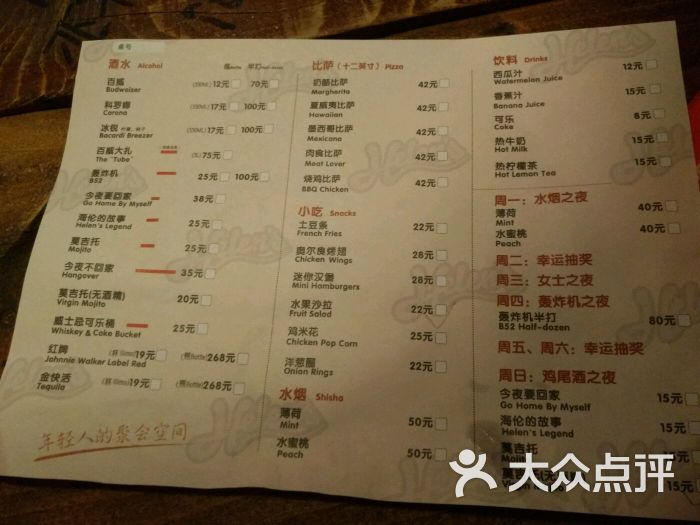 桌号
酒水 Alcohol 瓶/Bottle 半打/Half-dozen
百威 (330ML) 12元 70元
Budweiser
科罗娜 (330ML) 17元 100元
Corona
冰锐 (330ML) 17元 100元
Bacardi Breezer
百威大扎 (5L) 75元
The "Tube"
轰炸机 25元 100元
B52
今夜要回家 38元
Go Home By Myself
海伦的故事 25元
Helen's Legend
莫吉托 25元
Mojito
今夜不回家 35元
Hangover
莫吉托(无酒精) 20元
Virgin Mojito
威士忌可乐桶 25元
Whiskey & Coke Bucket
红牌 (杯/Glass) 19元 (瓶/Bottle) 268元
Johnnie Walker Label Red
金快活 (杯/Glass) 19元 (瓶/Bottle) 268元
Tequila
年轻人的聚会空间
比萨 (十二英寸) Pizza
奶酪比萨 42元
Margherita
夏威夷比萨 42元
Hawaiian
墨西哥比萨 42元
Mexicana
肉食比萨 42元
Meat Lover
烧鸡比萨 42元
BBQ Chicken
小吃 Snacks
土豆条 22元
French Fries
奥尔良烤翅 28元
Chicken Wings
迷你汉堡 28元
Mini Hamburgers
水果沙拉 22元
Fruit Salad
鸡米花 22元
Chicken Pop Corn
洋葱圈 22元
Onion Rings
水烟 Shisha
薄荷 50元
Mint
水蜜桃 50元
Peach
饮料 Drinks
西瓜汁 12元
Watermelon Juice
香蕉汁 15元
Banana Juice
可乐 8元
Coke
热牛奶 15元
Hot Milk
热柠檬茶 15元
Hot Lemon Tea
周一：水烟之夜
薄荷 40元
Mint
水蜜桃 40元
Peach
周二：幸运抽奖
周三：女士之夜
周四：轰炸机之夜
轰炸机半打 80元
B52 Half-dozen
周五、周六：幸运抽奖
周日：鸡尾酒之夜
今夜要回家 15元
Go Home By Myself
海伦的故事 15元
Helen's Legend
莫吉托 15元
Mojito
15元
大众点评